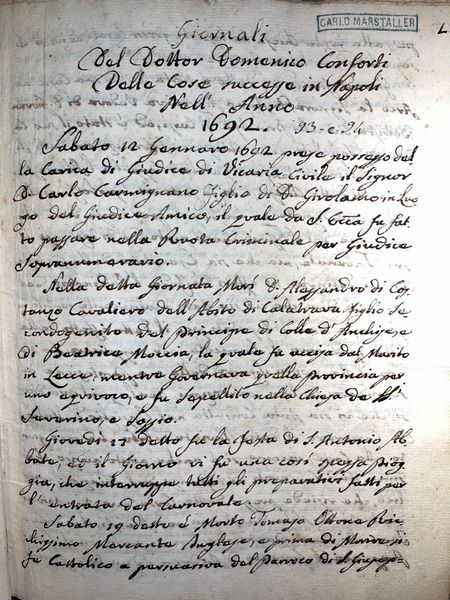 CARLO MARSTALLER
Giornali
Del Dottor Domenico Conforti
Delle Cose successe in Napoli
Nell' Anno
1692. 93. e. 94
Sabato 12 Gennaro 1692 prese possesso del
la Carica di Giudice di Vicaria Civile il Signor
D. Carlo Carmignano figlio di D. Girolamo, in Luo
go del Giudice Amico, il quale da S. Ecca fu fat
to passare nella Ruota Criminale per Giudice
Sopranumerario.
Nella detta Giornata Morì D. Alessandro di Cos
tanzo Cavaliero dell'Abito di Calatrava figlio Se
condogenito del Principe di Colle d'Anchise, e
di Beatrice Moccia, la quale fu uccisa dal Marito
in Lecce, mentre Governava quella Provincia per
uno equivoco, e fu Sepellito nella Chiesa de SS.
Severino, e Sossio.
Giovedì 17 detto fu la festa di S. Antonio Ab
bate, ed il Giorno vi fu una così spessa piog
gia, che interruppe tutti gli preparativi fatti per
l'entrata del Carnovale.
Sabato 19 detto è Morto Tomaso Ottone Ric
chissimo Mercante Inglese, e prima di Morire si
fe Cattolico a persuasiva del Parroco di S. Giusep-